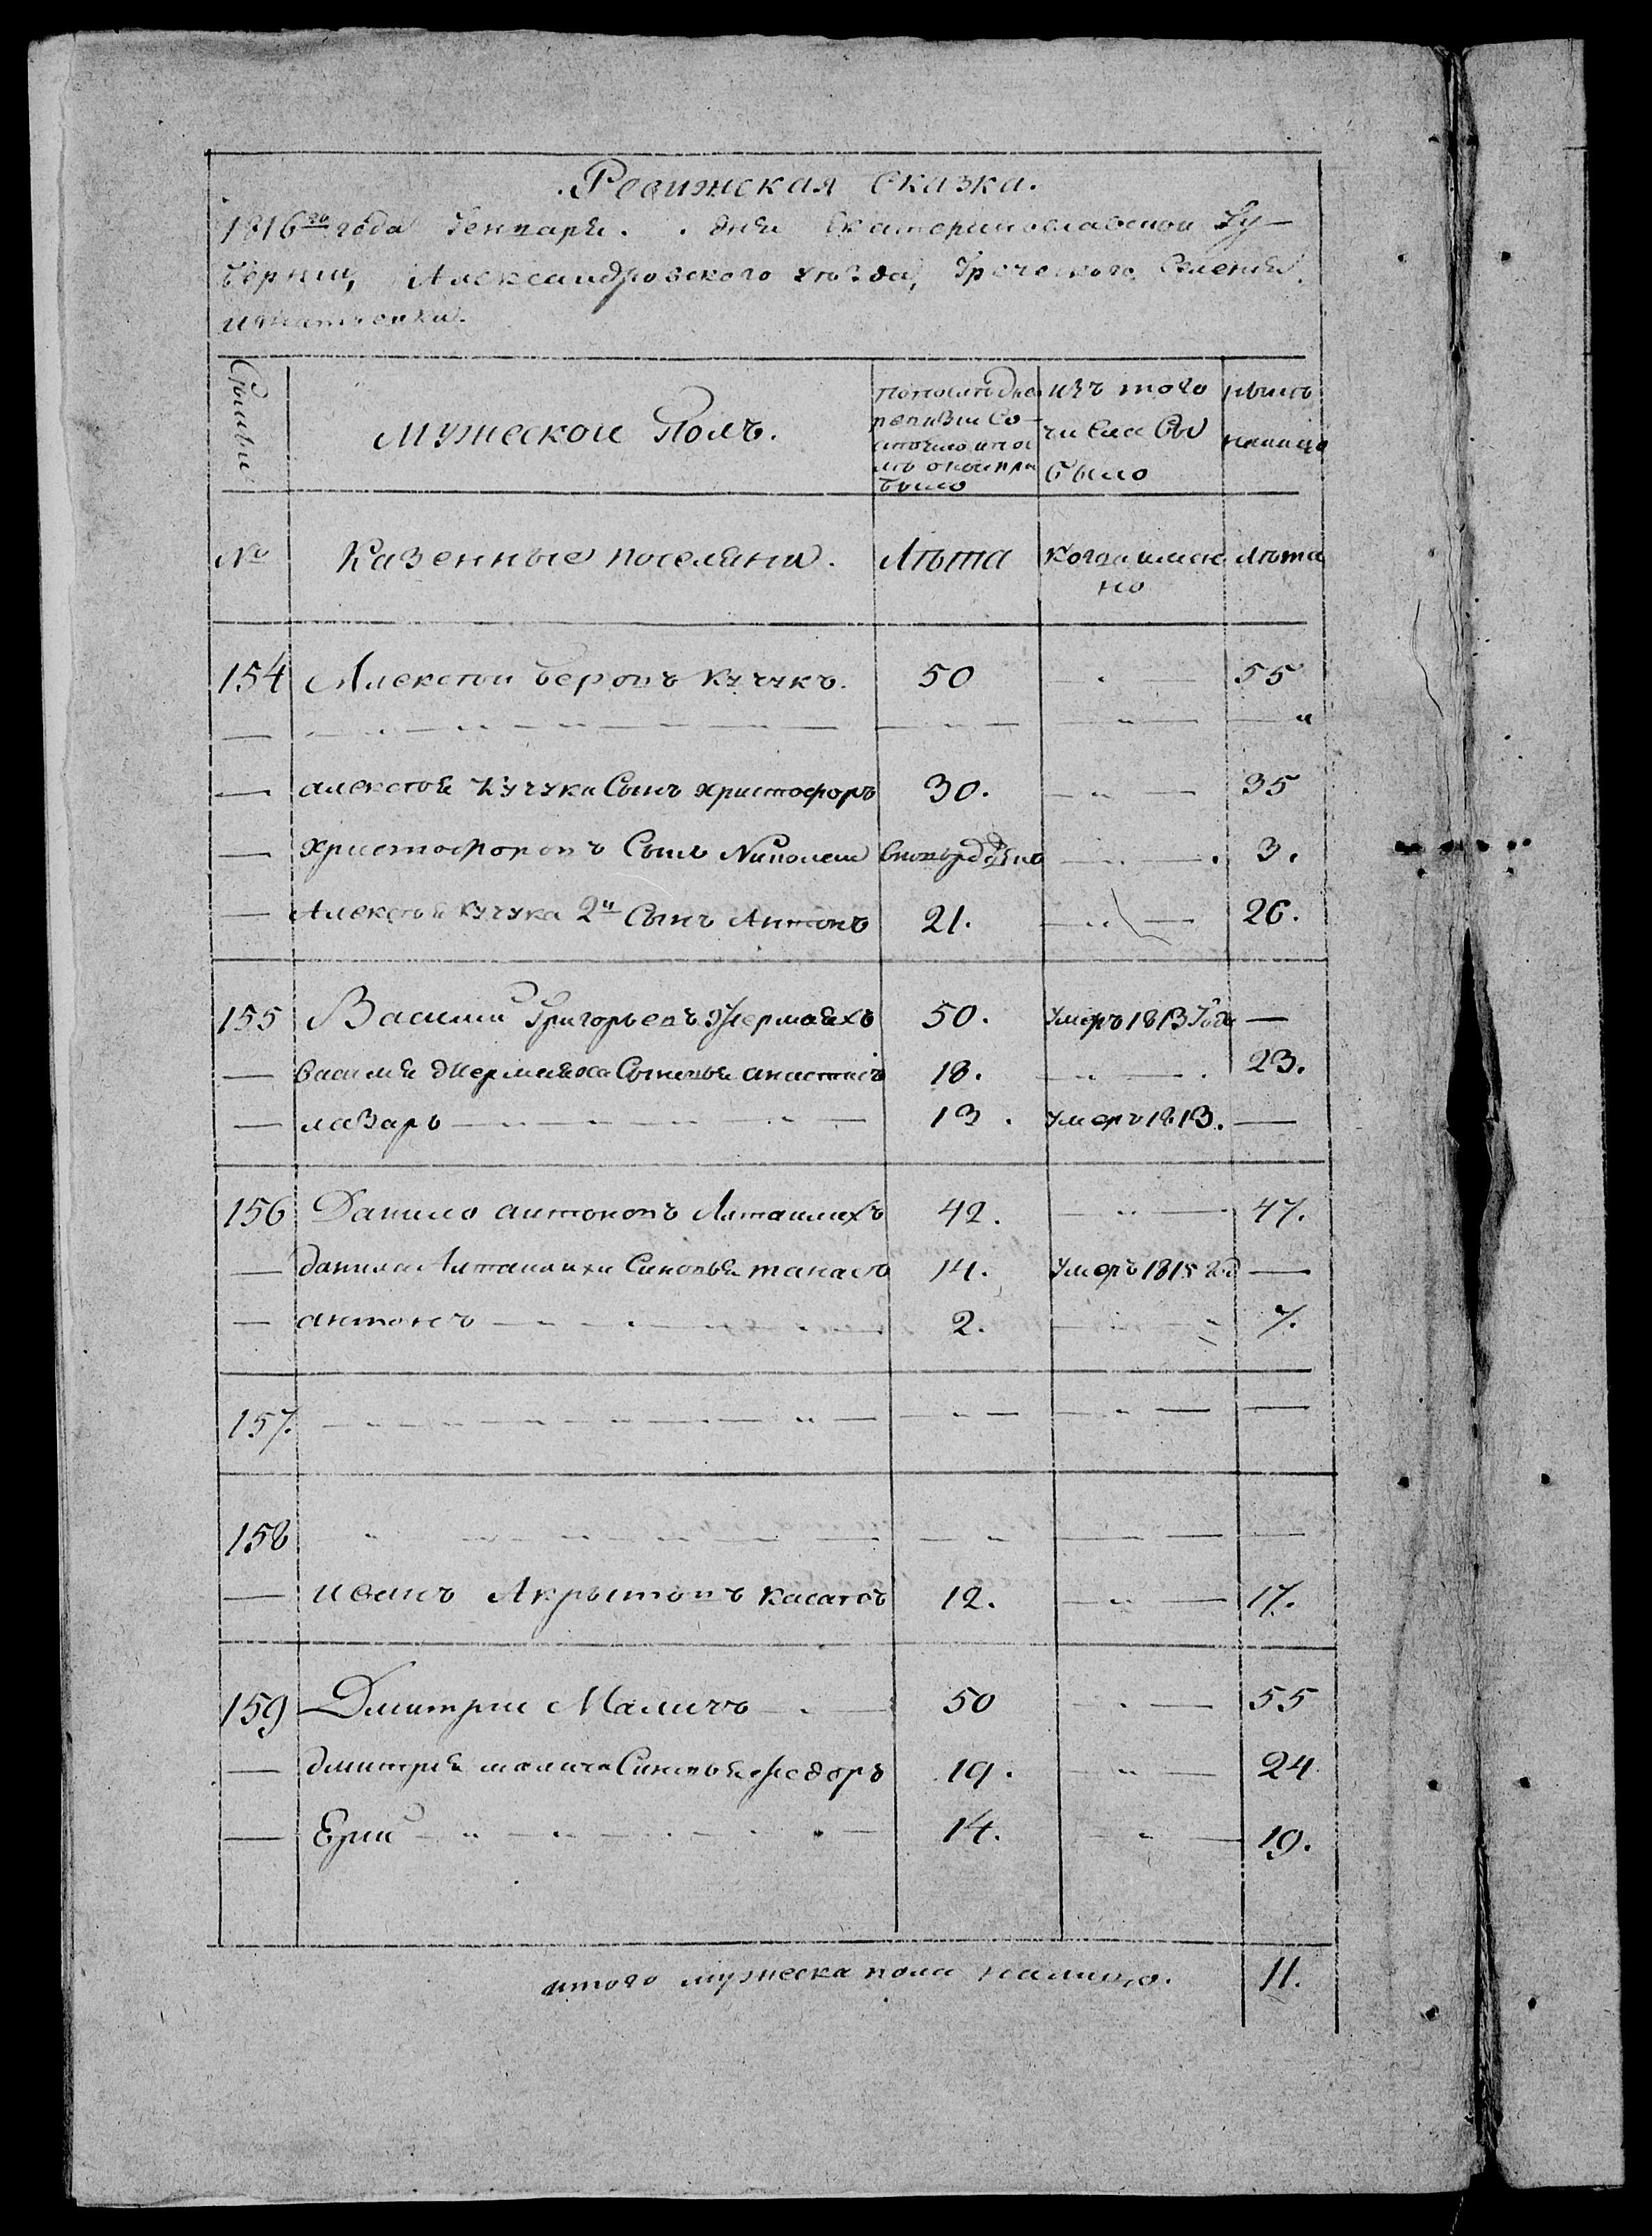 Ревижская Сказка.
1816го года Генваря . . дня Екатеринославской Гу-
бернии, Александровского уезда, Греческого Селения
Игнатьевки.
Семьи
Мужескои Полъ.
по последней ревизии Состояло и после онои прибыло
изъ того числа Выбыло
ныне налицо
№ Казенные поселяни. Лѣта Когда именно Лѣта
154 Алексѣи Беровъ Кучукъ. 50 55
— Алексѣя Кучука Сынъ Христофоръ 30. 35
— Христофоровъ Сынъ Николаи вновьрожденъ 3.
— Алексѣя Кучука 2й Сынъ Антонъ 21. 26.
155 Василии Григорьевъ 50. Умеръ 1813 Года —
— Василия Сыновья Анастасъ 18. 23.
— Лазарь 13. Умеръ 1813. —
156 Данило Антоновъ 42. 47.
— Данила Синовья Танасъ 14. Умеръ 1815 год —
— Антонъ 2. 7.
157.
158
— Иванъ 12. 17.
159 Дмитрии Маличъ 50 55
— Дмитрия Малича Синовья Федоръ 19. 24
— 14. 19.
итого мужеска пола налицо. 11.